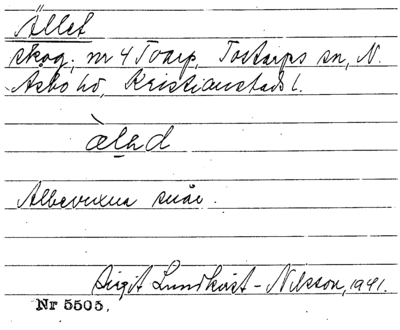 Ället
skog, nr 4 Toarp, Tostarps sn, N.
Asbo hd, Kristianstads l.
Albevuxna snår.
Birgit Lundkvist-Nilsson, 1941.
Nr 5505.